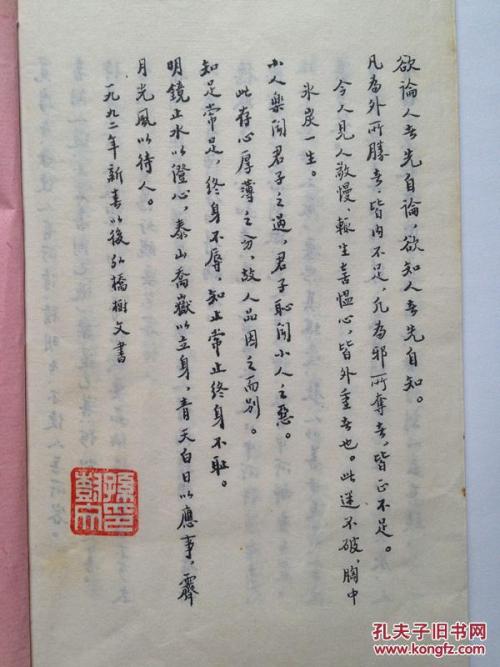 欲論人者先自論,欲知人者先自知。
凡為外所勝者,皆內不足,凡為邪所奪者,皆正不足。
今人見人敬慢,輒生喜慍心,皆外重者也。此迷不破,胸中
氷炭一生。
小人樂聞君子之過,君子恥聞小人之惡。
此存心厚薄之分,故人品因之而別。
知足常足,終身不辱,知止常止終身不耻。
明鏡止水以澄心,泰山喬嶽以立身,青天白日以應事,霽
月光風以待人。
一九九二年新春以後弘橋樹文書
孔夫子旧书网
www.kongfz.com